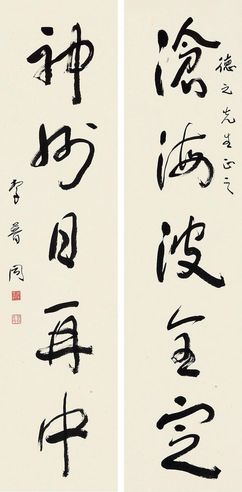 德先生正之
滄海波全定
神州日再中
李普同